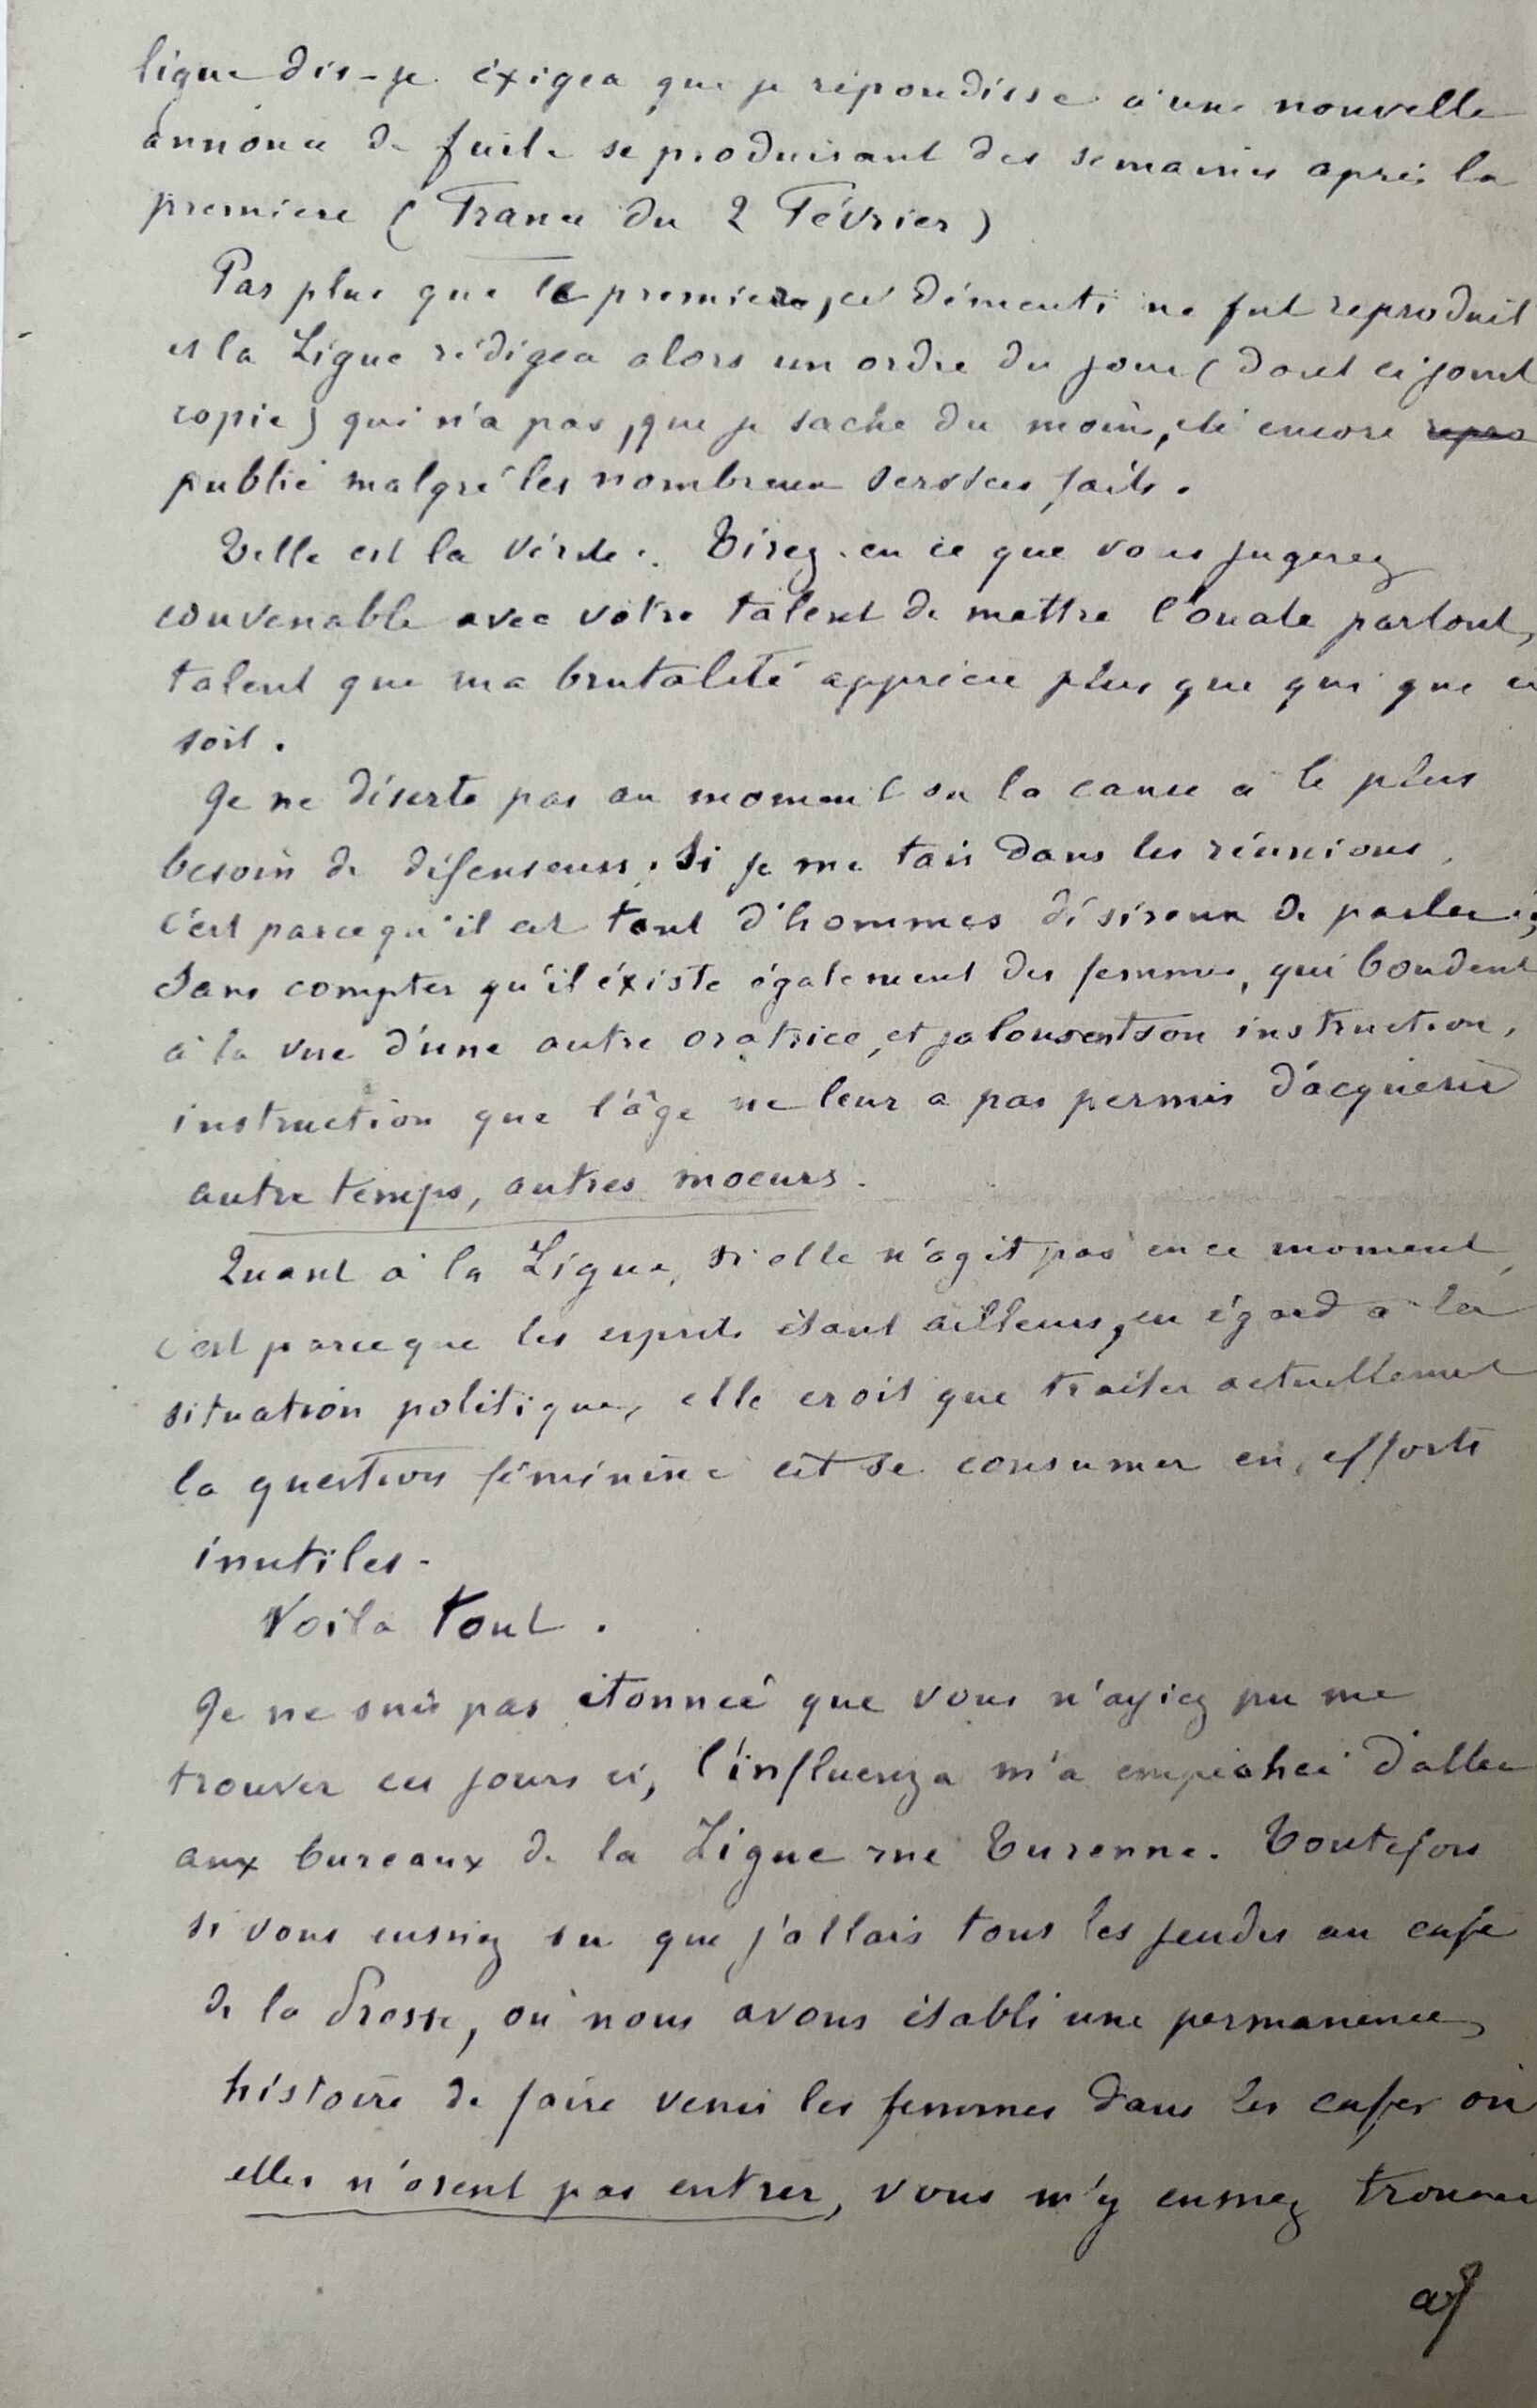 ligue dis-je éxigea que je répondisse à une nouvelle
annonce de fuite se produisant des semaines après la
premiere (France du 2 Février)
Pas plus que le premier, ce démenti ne fut reproduit
et la Ligue rédigea alors un ordre du jour (dont ci joint
copie) qui n'a pas, que je sache du moins, été encore repro
publié malgré les nombreux services faits.
Telle est la vérité. Tirez-en ce que vous jugerez
convenable avec votre talent de mettre l'ouate partout,
talent que ma brutalité apprécie plus que qui que ce
soit.
Je ne déserte pas au moment ou la cause a le plus
besoin de défenseurs. Si je me tais dans les réunions,
c'est parcequ'il est tant d'hommes désireux de parler;
sans compter qu'il éxiste également des femmes, qui boudent
à la vue d'une autre oratrice, et jalousent son instruction,
instruction que l'âge ne leur a pas permis d'acquérir
autre temps, autres moeurs.
Quant à la Ligue, si elle n'agit pas en ce moment,
c'est parceque les esprits étant ailleurs, eu égard à la
situation politique, elle croit que traiter actuellement
la question féminine est se consumer en efforts
inutiles.
Voilà tout.
Je ne suis pas étonneé que vous n'ayiez pu me
trouver ces jours ci, l'influenza m'a empêcheé d'aller
aux bureaux de la Ligue rue Turenne. Toutefois
si vous eussiez su que j'allais tous les jeudis au café
de la Presse, où nous avons établi une permanence,
histoire de faire venir les femmes dans les cafés où
elles n'osent pas entrer, vous m'y eussiez trouvée